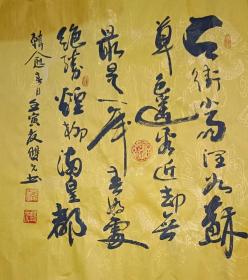 天街小雨润如酥
草色遥看近却无
最是一年春好处
绝胜烟柳满皇都
韩愈
壬寅
书